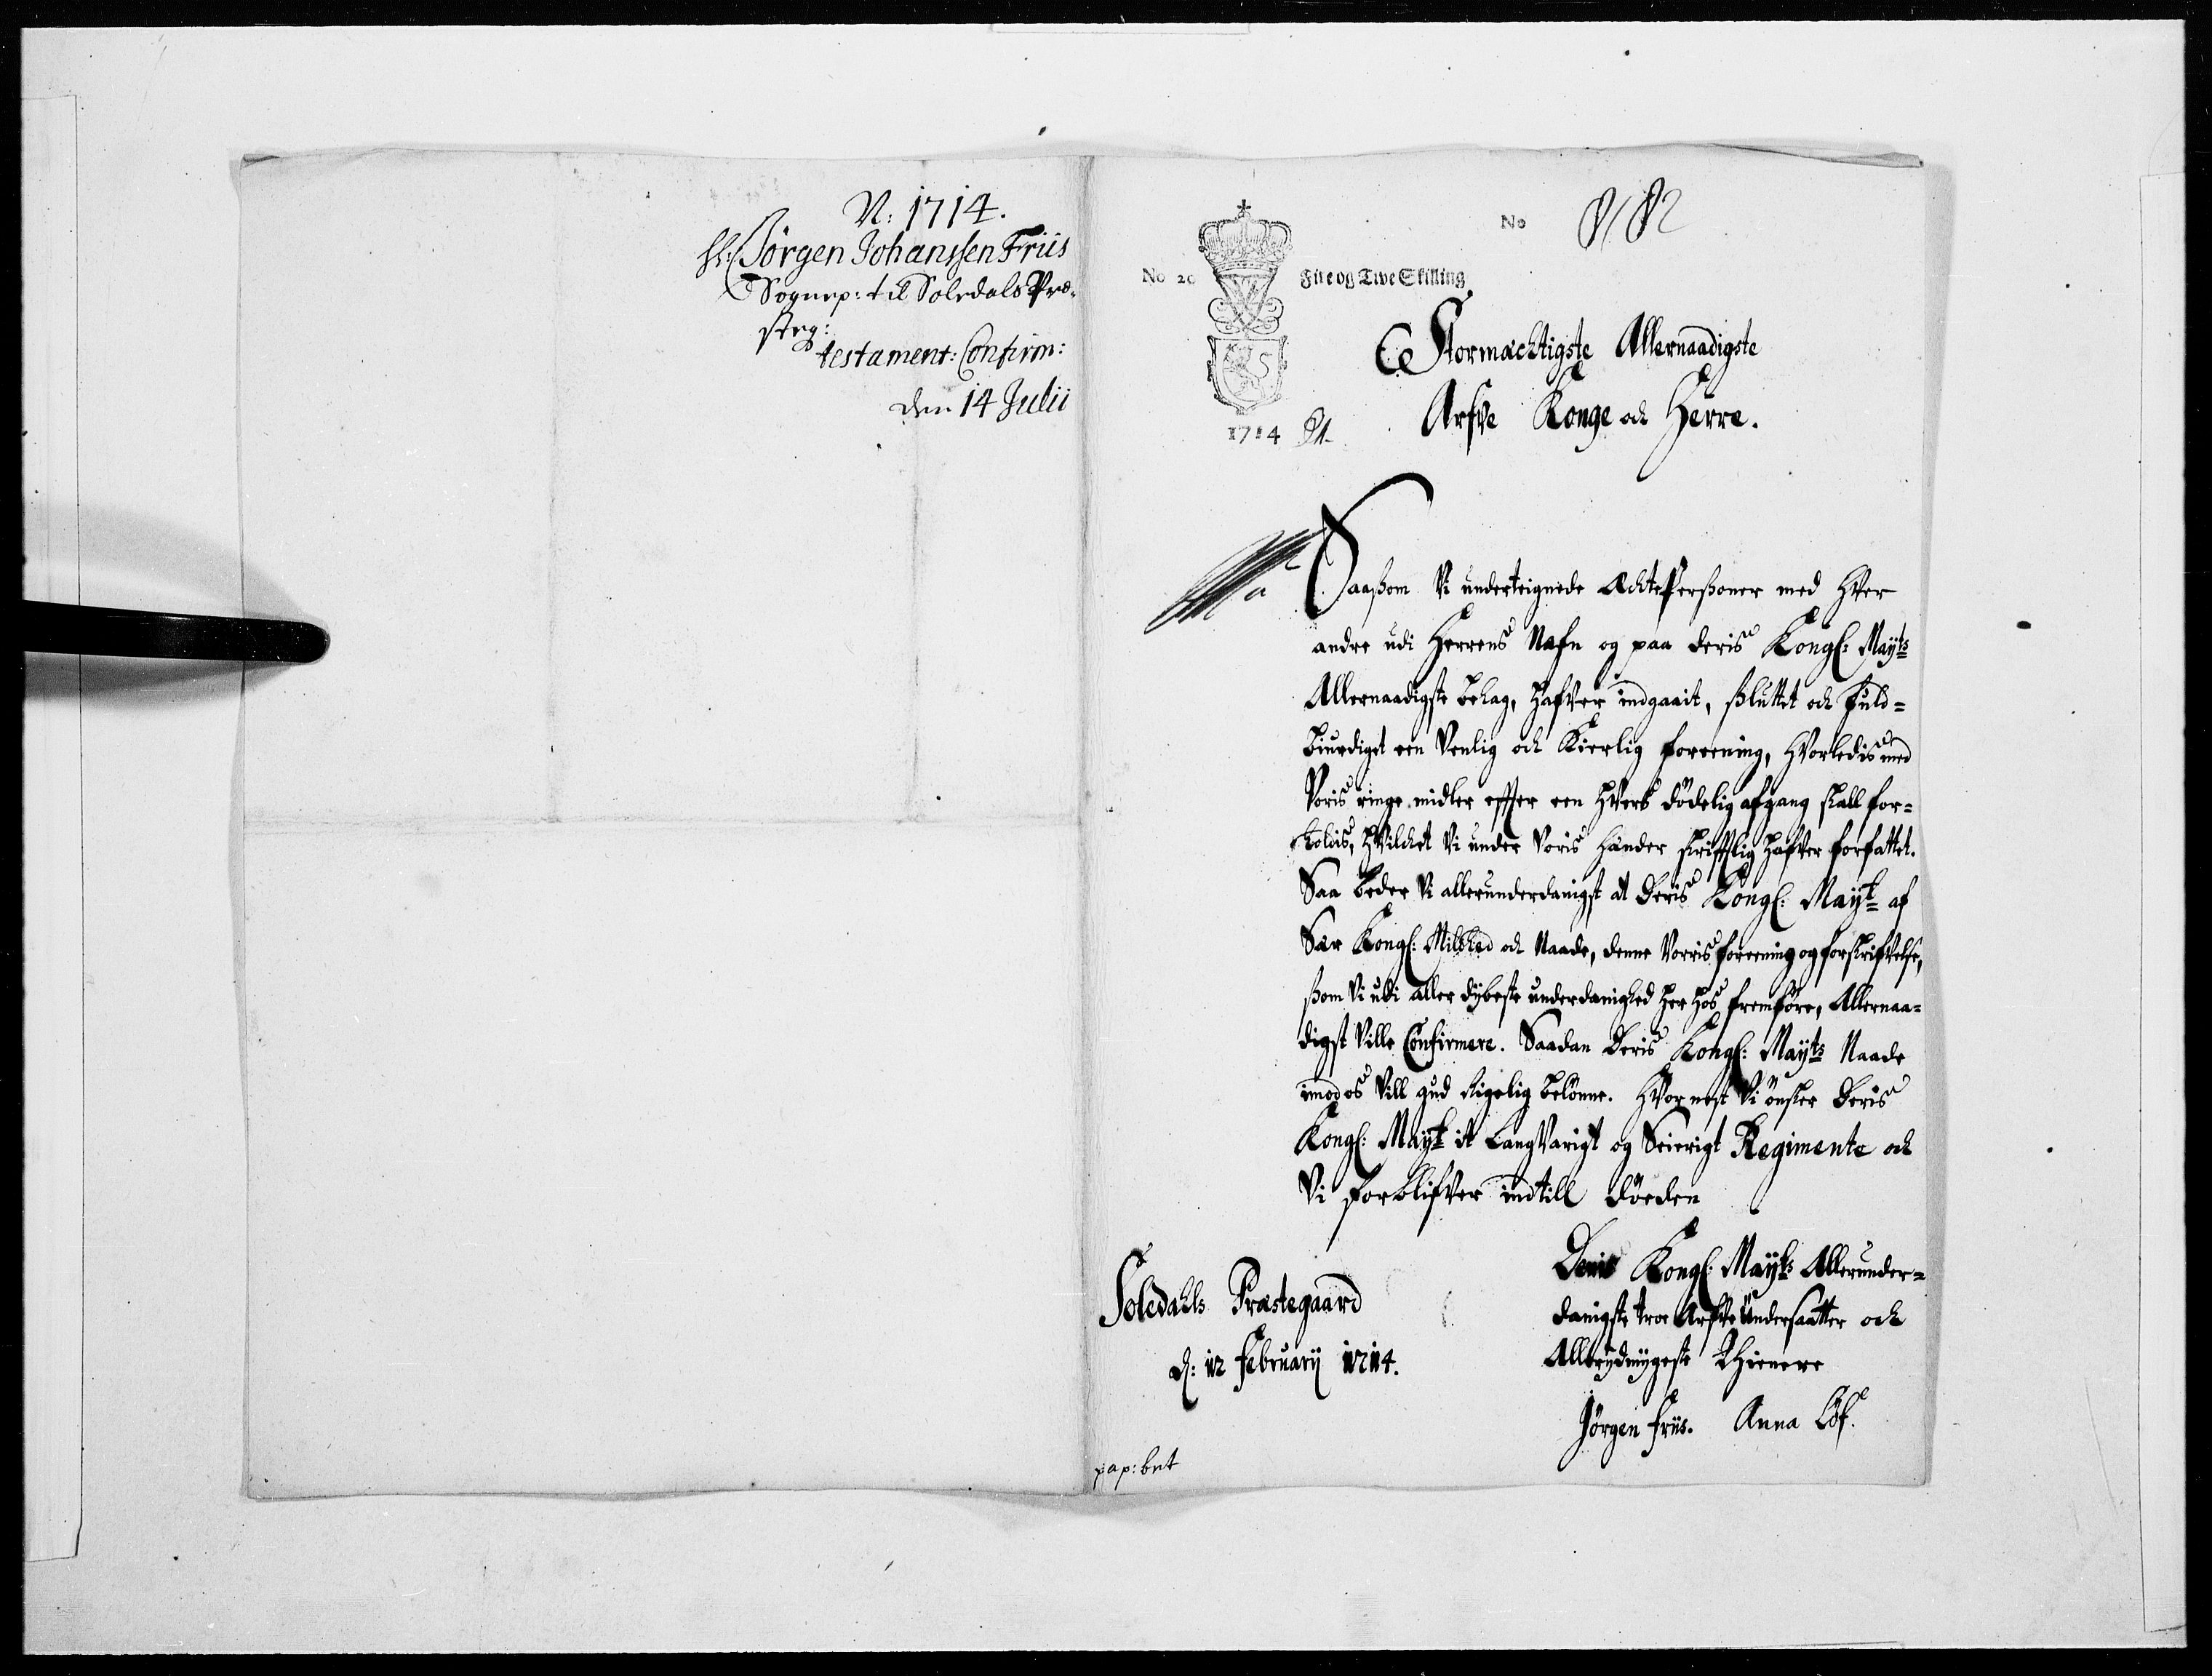 N: 1714.
Hr: Jörgen Johanssen Friis
Sognep: til Soledals Præ-
steg:
testament: Confirm:
den 14 Julii
No
No 20
Fire og Tive Skilling
1714
Stormæchtigste Allernaadigste
Arfve Konge och Herre.
Saaßom Vi underteignede Ächte Perßoner med Hver
andre udi Herrens Nafn og paa Deris Kongl: Mayts
Allernaadigste behag, hafver indgaait, ßluttet och fuld-
biurdiget een Venlig och Kierlig foreening, Hvorledis med
Voris ringe midler effter een Hvers dödelig afgang skall for-
holdis, Hvilchet Vi under Voris Hænder skrifftlig hafver forfattet.
Saa beder Vi allerunderdanigst at Deris Kongl: Mayt af
Sær Kongl: Mildhed och Naade, denne Vorris foreening og forskrifvelse,
ßom Vi udi aller dybeste underdanighed her hos fremföre, Allernaa-
digst Ville Confirmere. Saadan Deris Kongl: Mayts Naade
imod os Vill gud Rigelig belönne. Hvor nest Vi önsker Deris
Kongl: Mayt it LangVarigt og Seierigt Regimente och
Vi forblifver indtill döeden
Deris Kongl: Mayts Allerunder-
danigste troe Arfve Undersaatter och
Allerydmygeste Thienere
Jörgen Friis. Anna Löf.
Soledahls Præstegaard
d: 12 February 1714.
pap: bnt